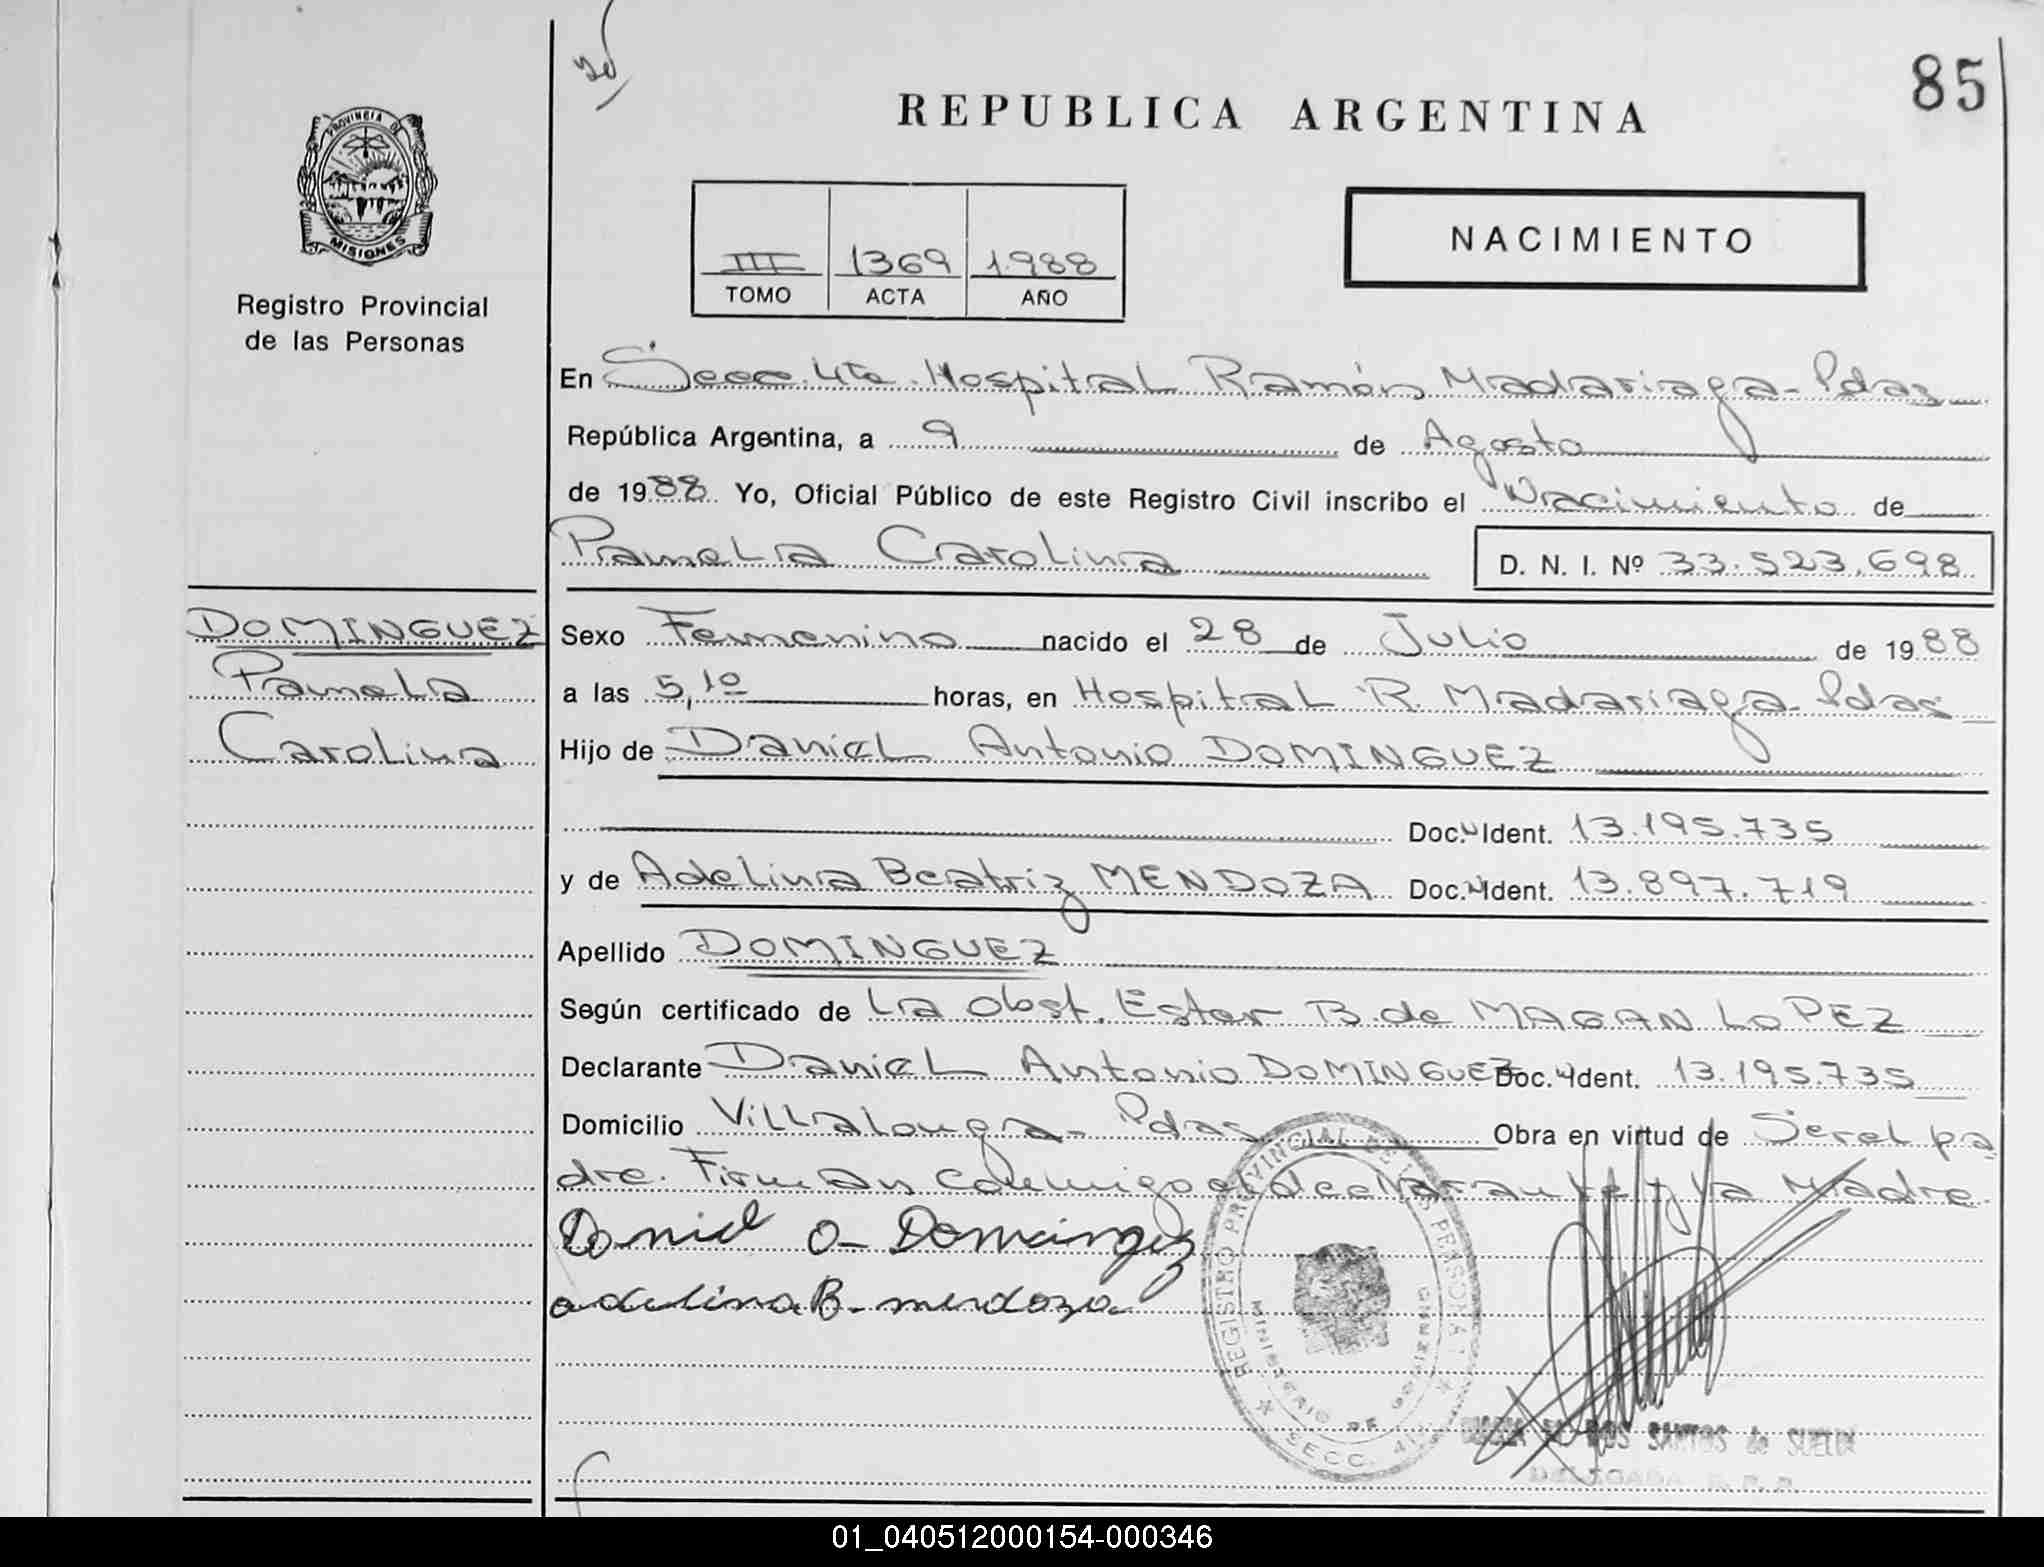 85
REPUBLICA ARGENTINA
PROVINCIA DE
MISIONES
Registro Provincial
de las Personas
III 1369 1.988
TOMO ACTA AÑO
NACIMIENTO
En Secc. 4ta. Hospital Ramón Madariaga - Pdas
República Argentina, a 9 de Agosto
de 1988 Yo, Oficial Público de este Registro Civil inscribo el Nacimiento de
Pamela Carolina D. N. I. Nº 33.523.698
DOMINGUEZ
Pamela
Carolina
Sexo Femenino nacido el 28 de Julio de 1988
a las 5,10 horas, en Hospital R. Madariaga - Pdas
Hijo de Daniel Antonio DOMINGUEZ
Doc. Ident. 13.195.735
y de Adelina Beatriz MENDOZA Doc. Ident. 13.897.719
Apellido DOMINGUEZ
Según certificado de La Obst. Ester B. de MAGAN LOPEZ
Declarante Daniel Antonio DOMINGUEZ Doc. Ident. 13.195.735
Domicilio Villalonga - Pdas Obra en virtud de Ser el pa
dre. Firman conmigo el declarante y la Madre
Daniel A- Domingez
adelina B. mendoza
REGISTRO PROVINCIAL DE LAS PERSONAS
MINISTERIO DE GOBIERNO
SECC. 4
DOS SANTOS de
DELEGADA
01_040512000154-000346